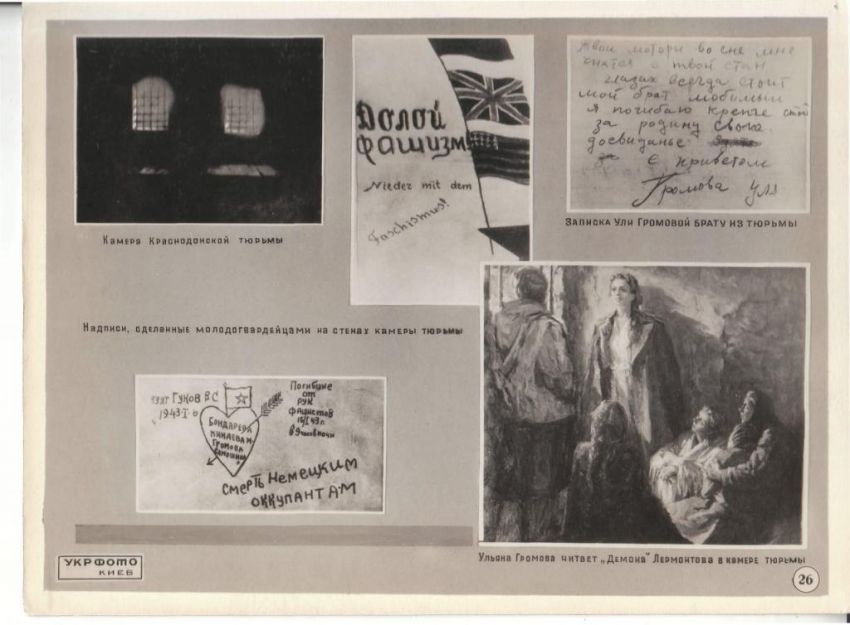 Камера Краснодонской тюрьмы
Долой
фашизм
Nieder mit dem
Faschismus!
твой стан
глазах всегда стоит
мой брат любимый
я погибаю крепче
за родину свою.
досвиданье
С приветом
Громова Уля
Записка Ули Громовой брату из тюрьмы
Надписи, сделанные молодогвардейцами на стенах камеры тюрьмы
взят Гуков В С
1943-I-6
Бондарева
Минаева
Громова
Самошина
Погибшие
от
рук
фашистов
15/I 43 г
в 9 час ночи
Смерть немецким
оккупантам
Ульяна Громова читает „Демона" Лермонтова в камере тюрьмы
УКРФОТО
КИЕВ
26